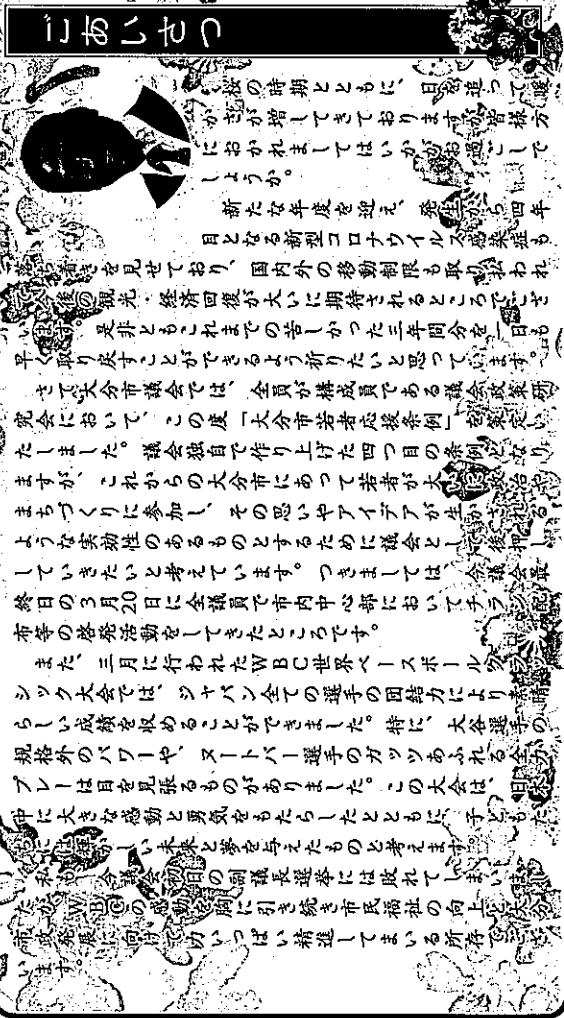 ごあいさつ
桜の時期とともに、日を追って暖
かさが増してきておりますが皆様方
におかれましてはいかがお過ごしで
しょうか。
新たな年度を迎え、発生から四年
目となる新型コロナウイルス感染症も
落ち着きを見せており、国内外の移動制限も取り払われ
て今後の観光・経済回復が大いに期待されるところでござ
います。是非ともこれまでの苦しかった三年間分を一日も
早く取り戻すことができるよう祈りたいと思っています。
さて大分市議会では、全員が構成員である議会政策研
究会において、この度「大分市若者応援条例」を策定い
たしました。議会独自で作り上げた四つ目の条例となり
ますが、これからの大分市にあって若者が大いに政治や
まちづくりに参加し、その思いやアイデアが生かされる
ような実効性のあるものとするために議会として後押し
していきたいと考えています。つきましては、今議会最
終日の3月20日に全議員で市内中心部においてチラシ配
布等の啓発活動をしてきたところです。
また、三月に行われたWBC世界ベースボールクラ
シック大会では、ジャパン全ての選手の団結力により素晴
らしい成績を収めることができました。特に、大谷選手の
規格外のパワーや、ヌートバー選手のガッツあふれる全力
プレーは目を見張るものがありました。この大会は、日本
中に大きな感動と勇気をもたらしたとともに、子どもた
ちには輝かしい未来と夢を与えたものと考えます。
私も、今議会初日の副議長選挙には敗れてしまいまし
たが、WBCの感動を胸に引き続き市民福祉の向上と大分
市政発展に向けて力いっぱい精進してまいる所存でござ
います。